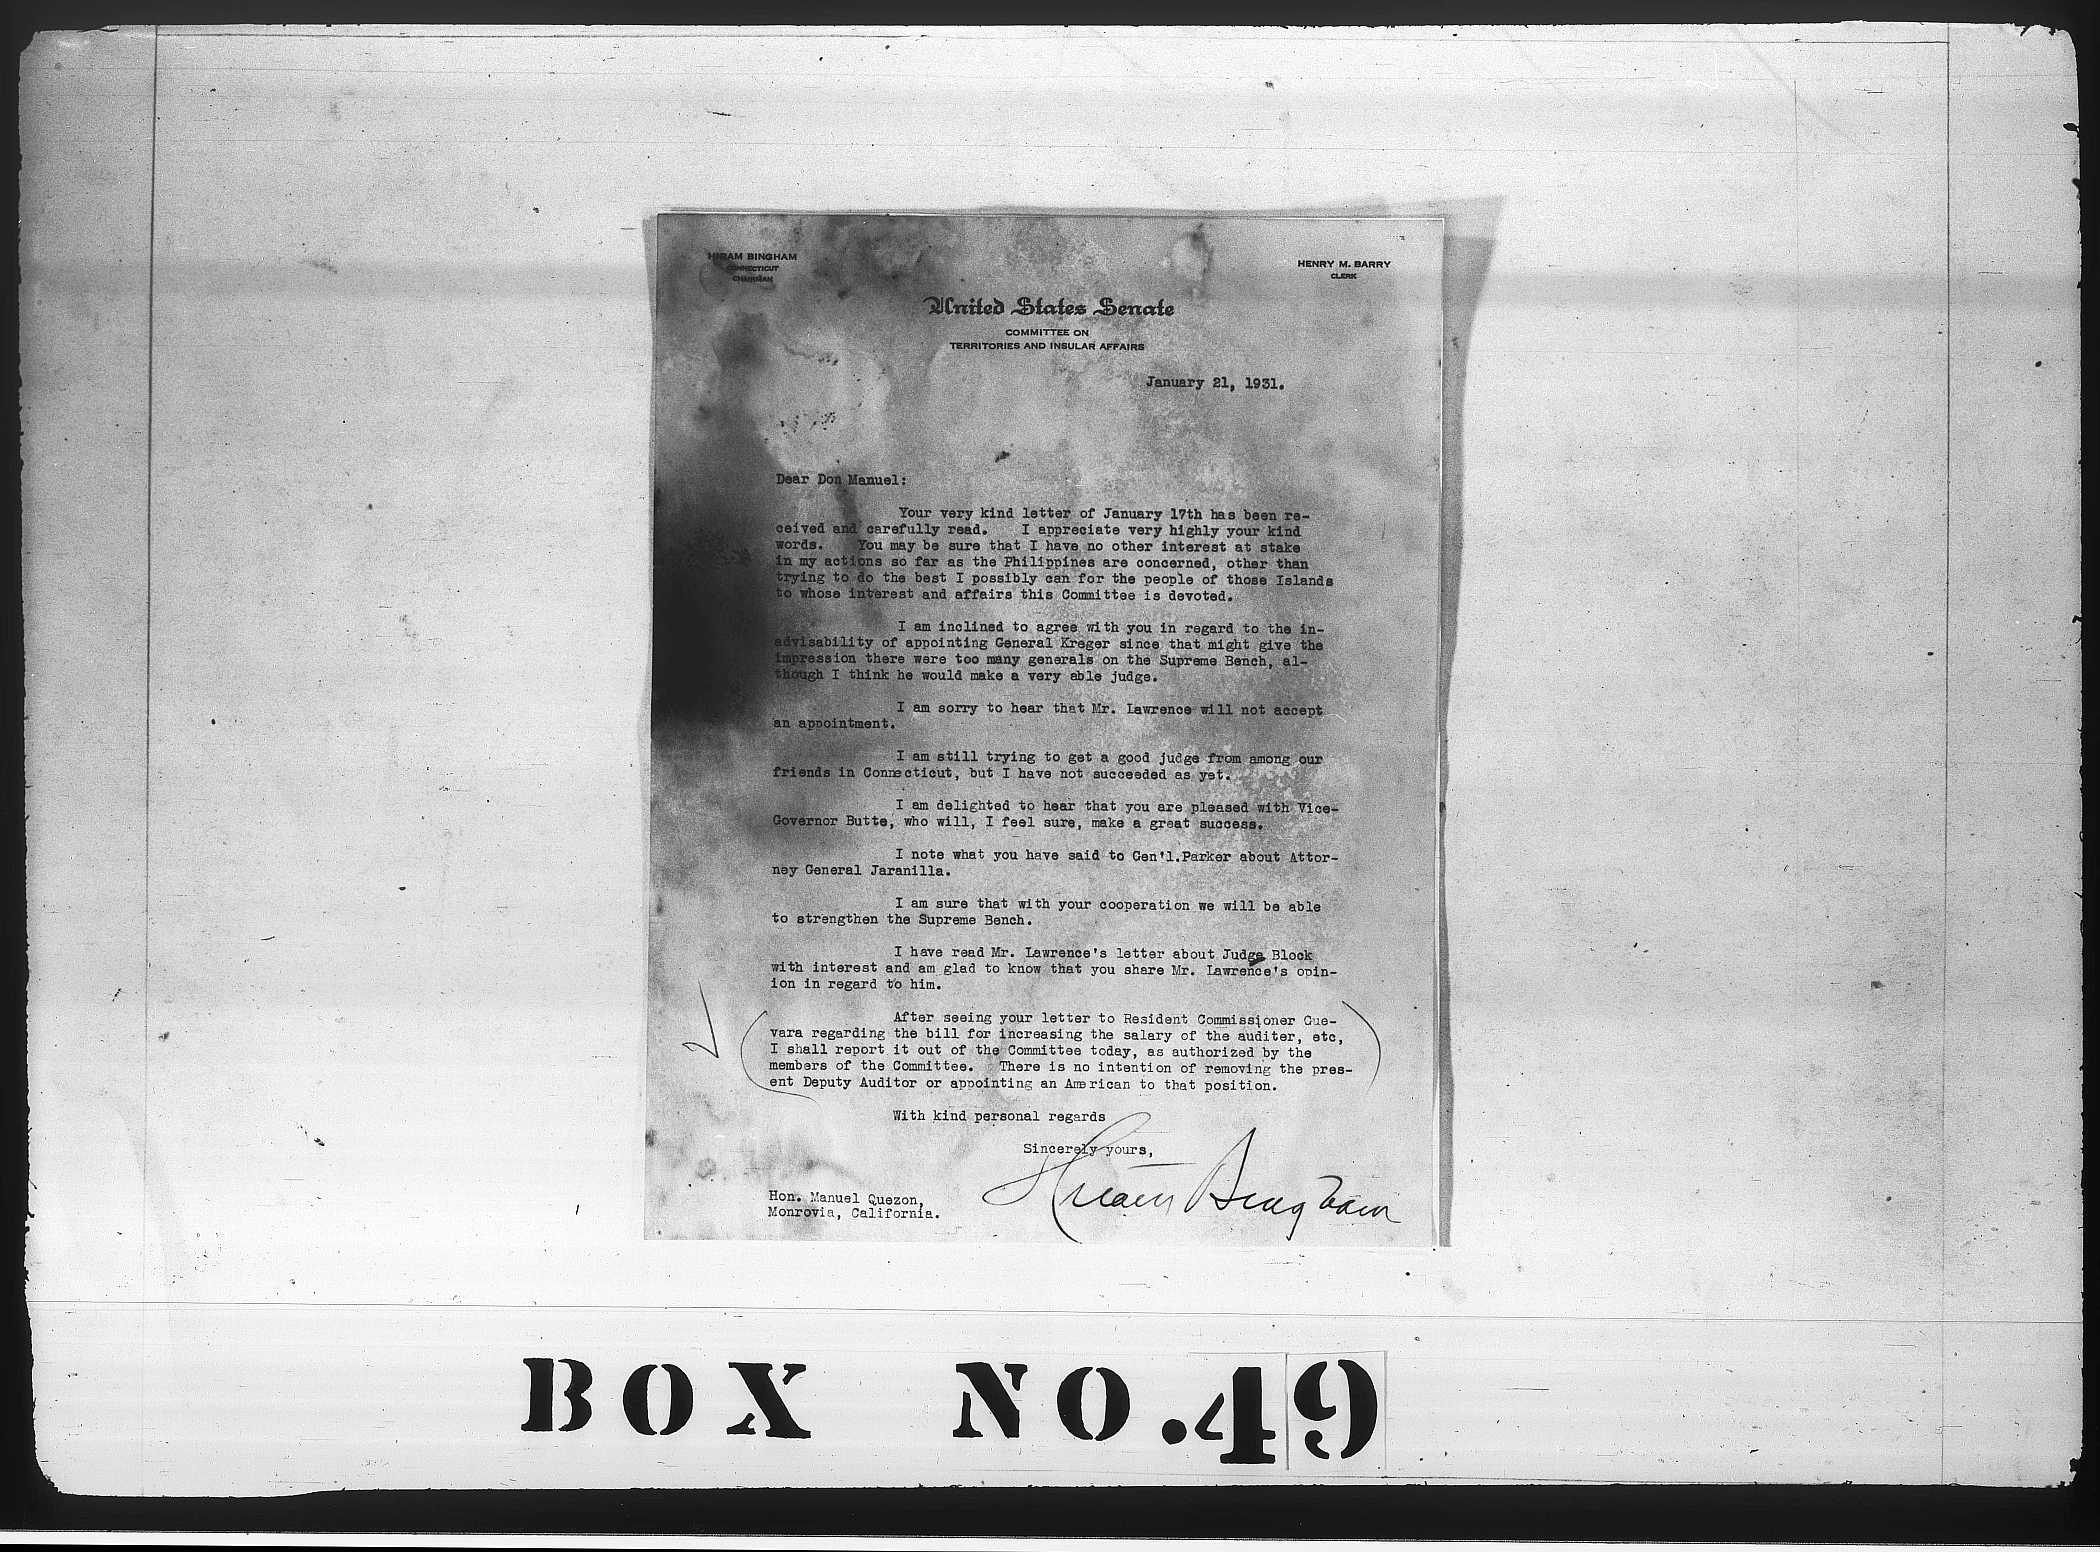 HIRAM BINGHAM
CONNECTICUT
CHAIRMAN
HENRY M. BARRY
CLERK
United States Senate
COMMITTEE ON
TERRITORIES AND INSULAR AFFAIRS
January 21, 1931.
Dear Don Manuel:
Your very kind letter of January 17th has been re-
ceived and carefully read. I appreciate very highly your kind
words. You may be sure that I have no other interest at stake
in my actions so far as the Philippines are concerned, other than
trying to do the best I possibly can for the people of those Islands
to whose interest and affairs this Committee is devoted.
I am inclined to agree with you in regard to the in-
advisability of appointing General Kreger since that might give the
impression there were too many generals on the Supreme Bench, al-
though I think he would make a very able judge.
I am sorry to hear that Mr. Lawrence will not accept
an appointment.
I am still trying to get a good judge from among our
friends in Connecticut, but I have not succeeded as yet.
I am delighted to hear that you are pleased with Vice-
Governor Butte, who will, I feel sure, make a great success.
I note what you have said to Gen'l.Parker about Attor-
ney General Jaranilla.
I am sure that with your cooperation we will be able
to strengthen the Supreme Bench.
I have read Mr. Lawrence's letter about Judge Block
with interest and am glad to know that you share Mr. Lawrence's opin-
ion in regard to him.
After seeing your letter to Resident Commissioner Gue-
vara regarding the bill for increasing the salary of the auditer, etc,
I shall report it out of the Committee today, as authorized by the
members of the Committee. There is no intention of removing the pres-
ent Deputy Auditor or appointing an American to that position.
With kind personal regards
Sincerely yours,
Hiram Bingham
Hon. Manuel Quezon,
Monrovia, California.
BOX NO.49